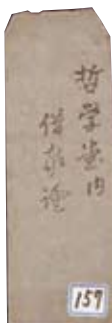 哲学堂内
借家證
157